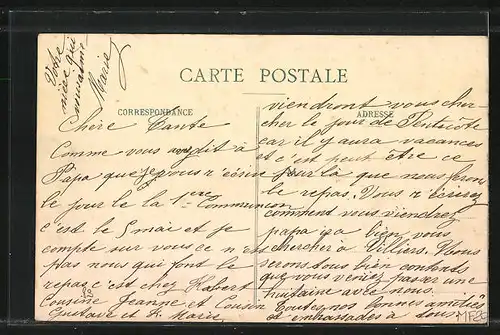 Votre
nièce qui
Marie
CARTE POSTALE
CORRESPONDANCE
ADRESSE
Chère Tante
Comme vous avez dit à
Papa que je vous r'écrive
le jour de la 1ere Communion
c'est le 5 mai et je
compte sur vous ce n'est
pas nous qui font le
repas c'est chez Hobert
Cousine Jeanne et Cousin
Gustave et Marie
viendront vous cher-
cher le jour de Pentecôte
car il y aura vacances
et c'est peut être ce
jour là que nous ferons
le repas. Vous r'écrirez
comment vous viendrez
papa ira bien vous
chercher à Villiers. Nous
serons tous bien contents
que vous veniez passer une
huitaine avec nous.
Toutes nos bonnes amitiés
et embrassades à tous